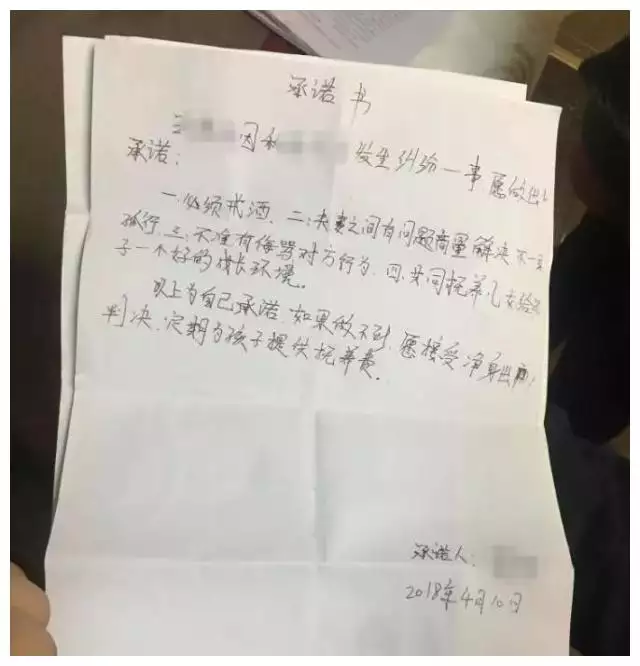 承诺书
因和 发生纠纷一事愿做出
承诺:
一.必须戒酒、二:夫妻之间有问题商量解决不一意
孤行、三:不准有侮骂对方行为、四:共同抚养儿女给孩
子一个好的成长环境。
以上为自己承诺.如果做不到.愿接受净身出户,
判决、定期为孩子提供抚养费。
承诺人:
2018年4月10日